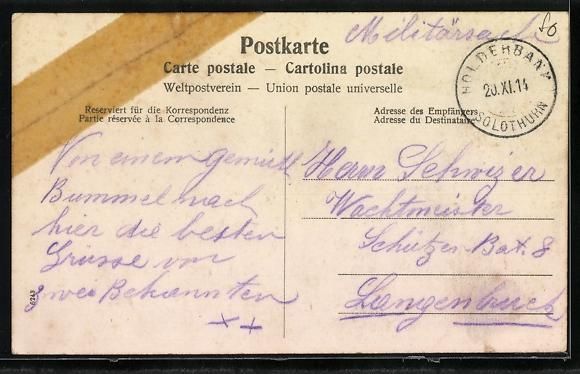 Militärsache
50
Postkarte
Carte postale – Cartolina postale
Weltpostverein – Union postale universelle
HOLDERBANK
20.XI.14
SOLOTHURN
Reserviert für die Korrespondenz
Partie réservée à la Correspondence
Adresse des Empfängers
Adresse du Destinataire
Von einem gemütl.
Bummel nach
hier die besten
Grüsse von
zwei Bekannten
x x
Herrn Schwizer
Wachtmeister
Schützen Bat. 8
Langenbruck
6243